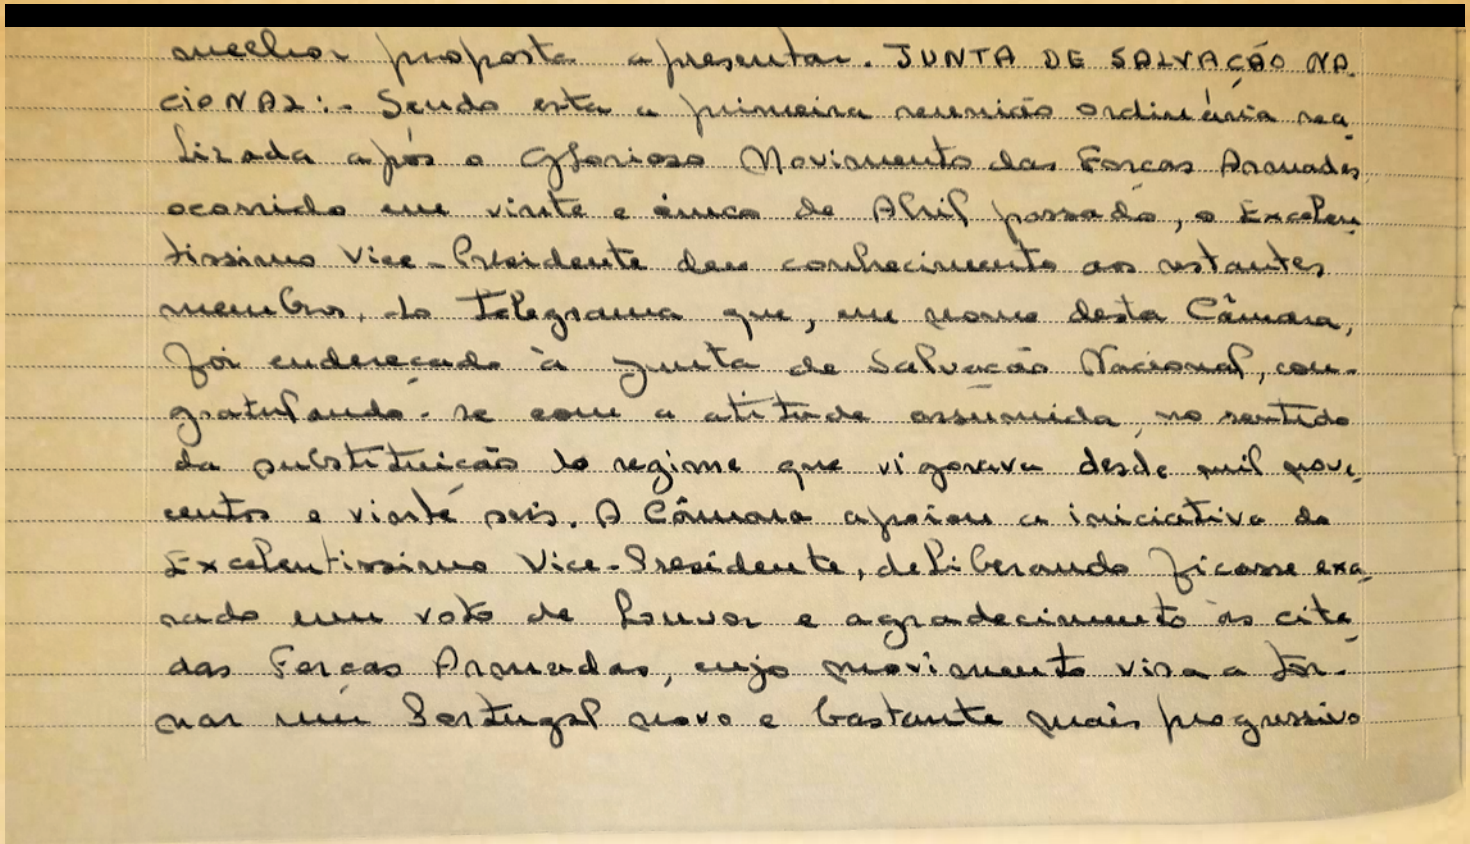 melhor proposta apresentar. JUNTA DE SALVAÇÃO NA-
CIONAL:- Sendo esta a primeira reunião ordinária rea-
lizada após o Glorioso Movimento das Forças Armadas
ocorrido em vinte e cinco de Abril passado, o Excelen-
tissimo Vice-Presidente deu conhecimento aos restantes
membros, do telegrama que, em nome desta Câmara,
foi endereçado à Junta de Salvação Nacional, con-
gratulando-se com a atitude assumida, no sentido
da substituição do regime que vigorava desde mil nove-
centos e vinte seis. A Câmara apoiou a iniciativa do
Excelentissimo Vice-Presidente, deliberando ficasse exa-
rado um voto de louvor e agradecimento às cita-
das Forças Armadas, cujo movimento visa a tor-
nar um Portugal novo e bastante mais progressivo